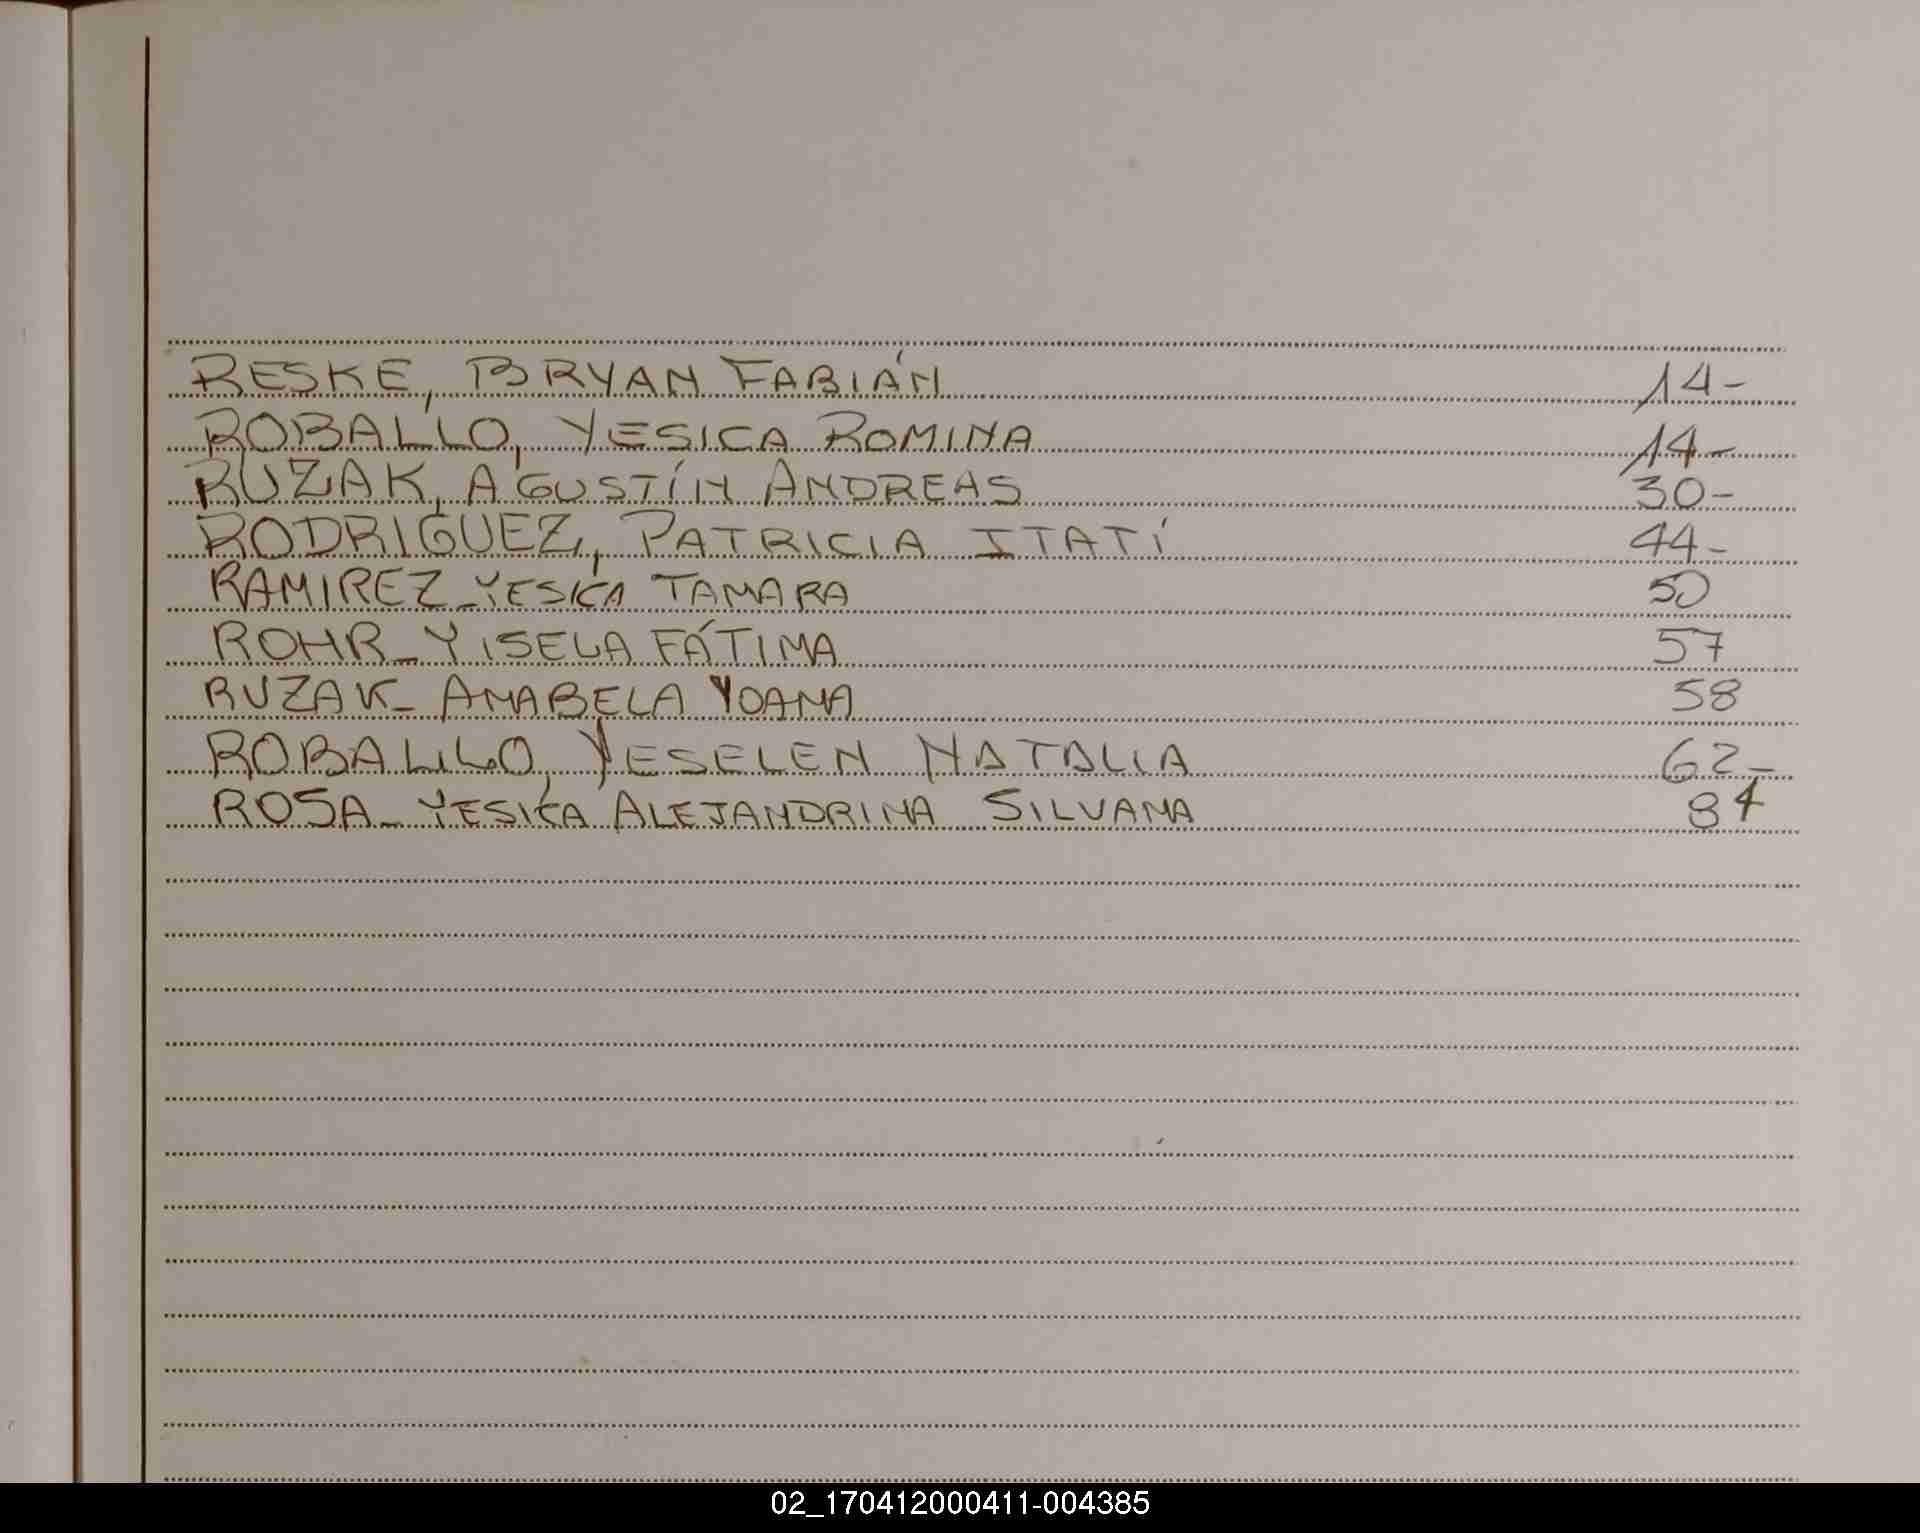 RESKE, BRYAN FABIÁN 14-
ROBALLO, YESICA ROMINA 14-
RUZAK, AGUSTÍN ANDREAS 30-
RODRIGUEZ, PATRICIA ITATÍ 44-
RAMIREZ - YESICA TAMARA 50
ROHR - YISELA FÁTIMA 57
RUZAK - ANABELA YOANA 58
ROBALLO, YESELEN NATALIA 62-
ROSA - YESICA ALEJANDRINA SILVANA 84
02_170412000411-004385